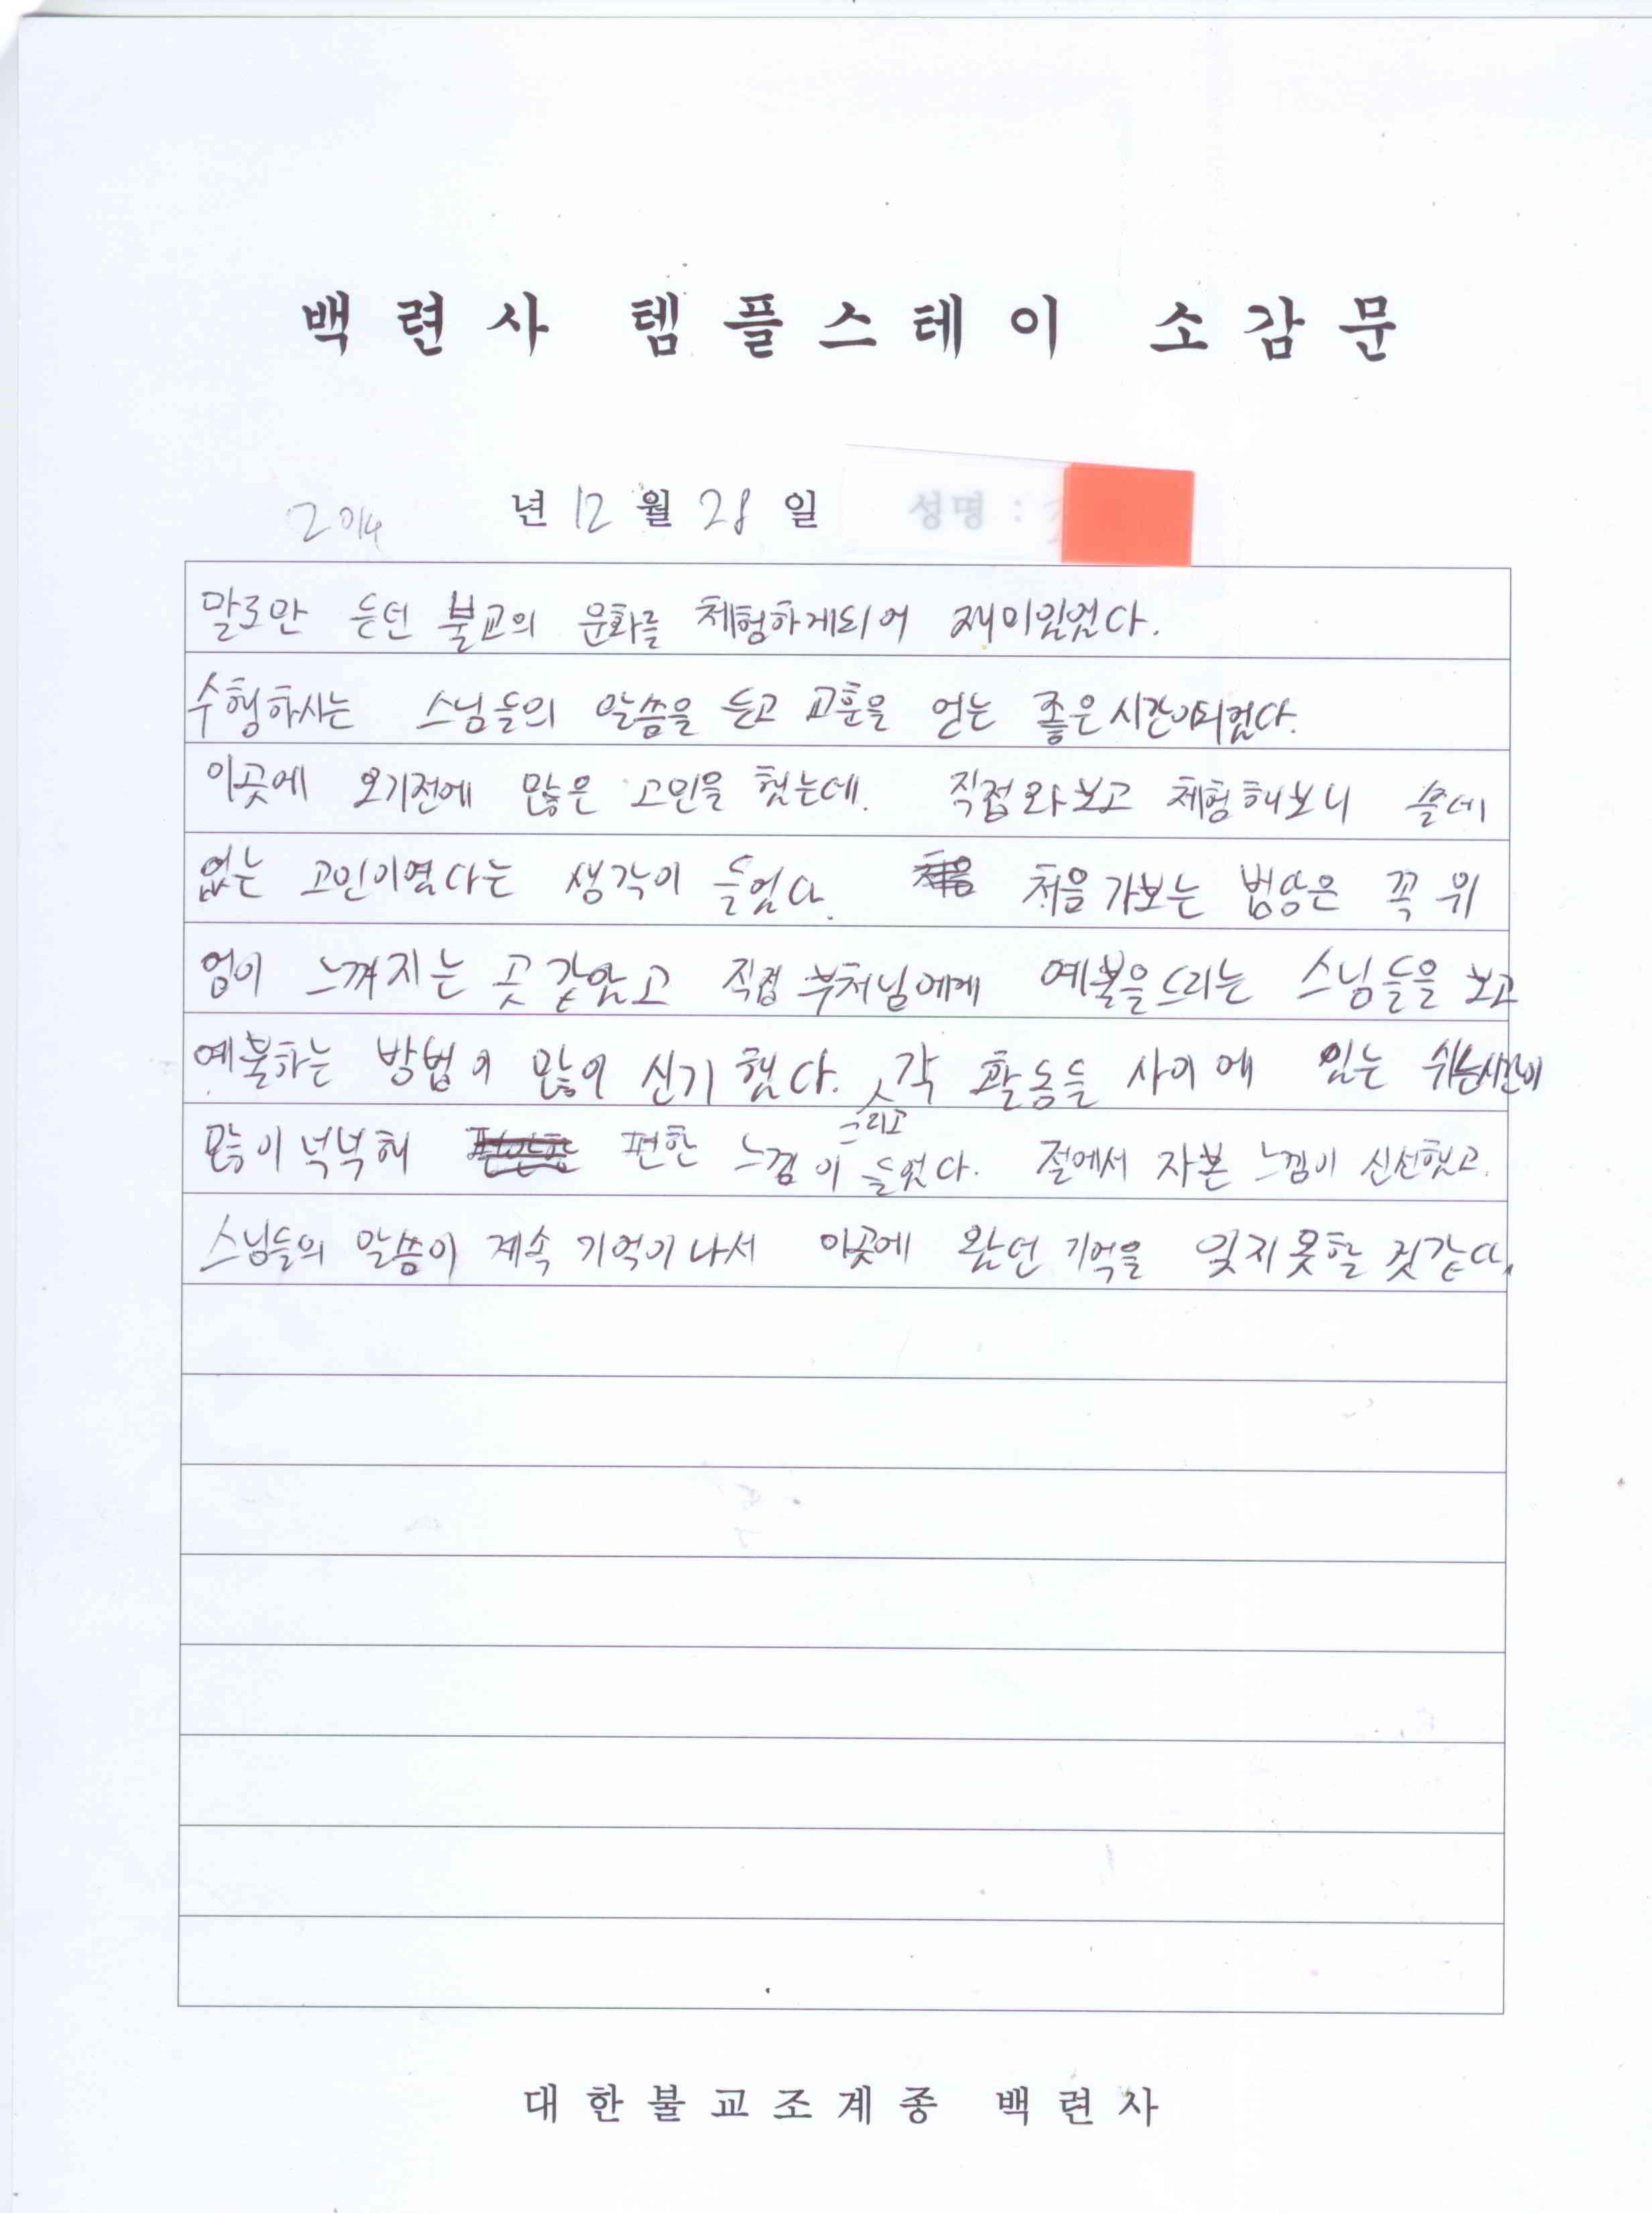 백련사 템플스테이 소감문
2014 년 12 월 28 일 성명 :
말로만 듣던 불교의 문화를 체험하게되어 재미있었다.
수행하시는 스님들의 말씀을 듣고 교훈을 얻는 좋은시간이되었다.
이곳에 오기전에 많은 고민을 했는데. 직접와보고 체험해보니 쓸데
없는 고민이였다는 생각이 들었다. 처음가보는 법당은 꼭 위
엄이 느껴지는 곳 같았고 직접 부처님에게 예불을드리는 스님들을 보고
예불하는 방법이 많이 신기했다. 그리고 각 활동들 사이에 있는 쉬는시간이
많이넉넉해 편한 느낌이 들었다. 절에서 자본 느낌이 신선했고.
스님들의 말씀이 계속 기억이나서 이곳에 왔던 기억을 잊지못할 것같다.
대한불교조계종 백련사